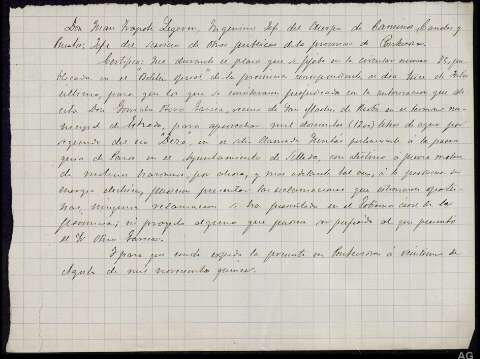 Don Juan Ingeniero Jefe del Cuerpo de Caminos, Canales y
Puertos, Jefe del servicio de Obras publicas de la provincia de Pontevedra.
Certifico: Que durante el plazo que se fijaba en la circular numero pu-
blicada en el "Boletin oficial" de la provincia correspondiente al dia once de Julio
ultimo, para que los que se considerasen perjudicados en la autorizacion que so-
licita Don Gonzalo vecino de San de en el termino mu-
nicipal de Estrada, para aprovechar mil doscientos (1200) litros de agua por
segundo del rio "Deza", en el sitio llamado perteneciente á la parro-
quia de en el Ayuntamiento de Silleda, con destino a fuerza motriz
de molinos harineros, por ahora, y mas adelante tal vez, á la produccion de
energia electrica, pudiesen presentar las reclamaciones que estimaran oportu-
nas, ninguna reclamacion se ha presentado en el Gobierno civil de la
provincia, ni proyecto alguno que pueda ser mejorado al que presentó
el Sr. Otero
Y para que conste expido la presente en Pontevedra á veintiuno de
Agosto de mil novecientos quince.
AG